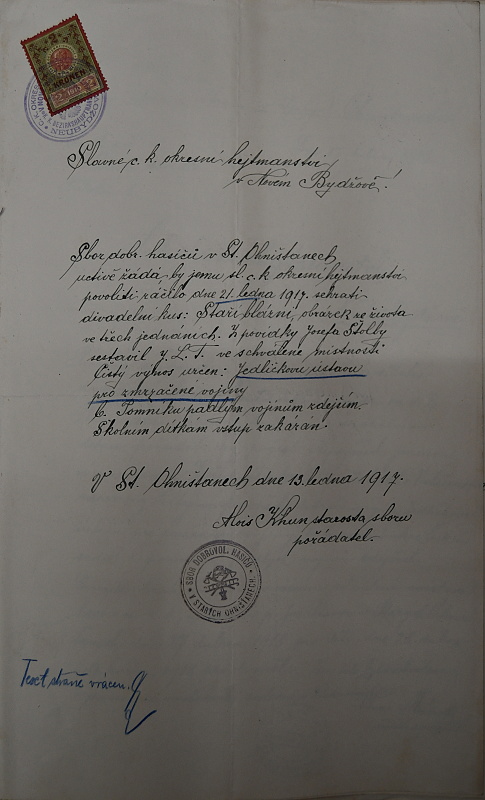 NEUBYDŽOV
1912
Slavné c. k. okresní hejtmanství
v Novém Bydžově!
Sbor dobr. hasičů v St. Ohništanech
uctivě žádá by jemu sl. c. k. okresní hejtmanství
povoliti ráčilo dne 21. ledna 1917. sehrati
divadelní kus: Staří blázni, obrázek ze života
ve třech jednáních. Z povídky Josefa Štolby
sestavil J. L. T. ve schválené místnosti
Čistý výnos určen: Jedličkovu ústavu
pro zmrzačené vojíny
Pomníku padlým vojínům zdejším.
Školním dítkám vstup zakázán.
V St. Ohništanech dne 13. ledna 1917.
Alois Khun starosta sboru
pořádatel.
SBOR DOBROVOL. HASIČŮ
V STARÝCH OHNIŠŤANECH.
Text straně vrácen.